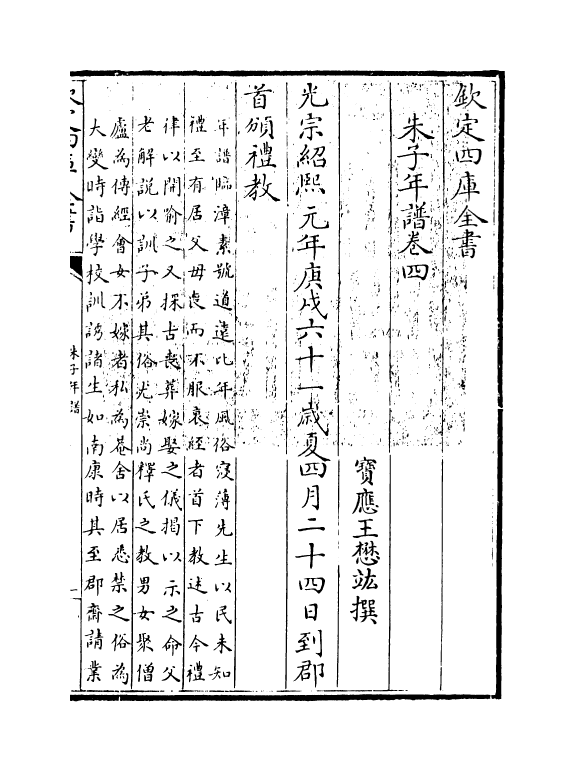 欽定四庫全書
朱子年譜卷四
寶應王懋竑撰
光宗紹熙元年庚戌六十一歲夏四月二十四日到郡
首頒禮教
年譜臨漳素號道遠比年風俗寖薄先生以民未知
禮至有居父母喪而不服衰絰者首下教述古今禮
律以開喻之又採古喪葬嫁娶之儀揭以示之命父
老解說以訓子弟其俗尤崇尚釋氏之教男女聚僧
廬為傳經會女不嫁者私為菴舍以居悉禁之俗為
大變時詣學校訓誘諸生如南康時其至郡齋請業
朱子年譜
一